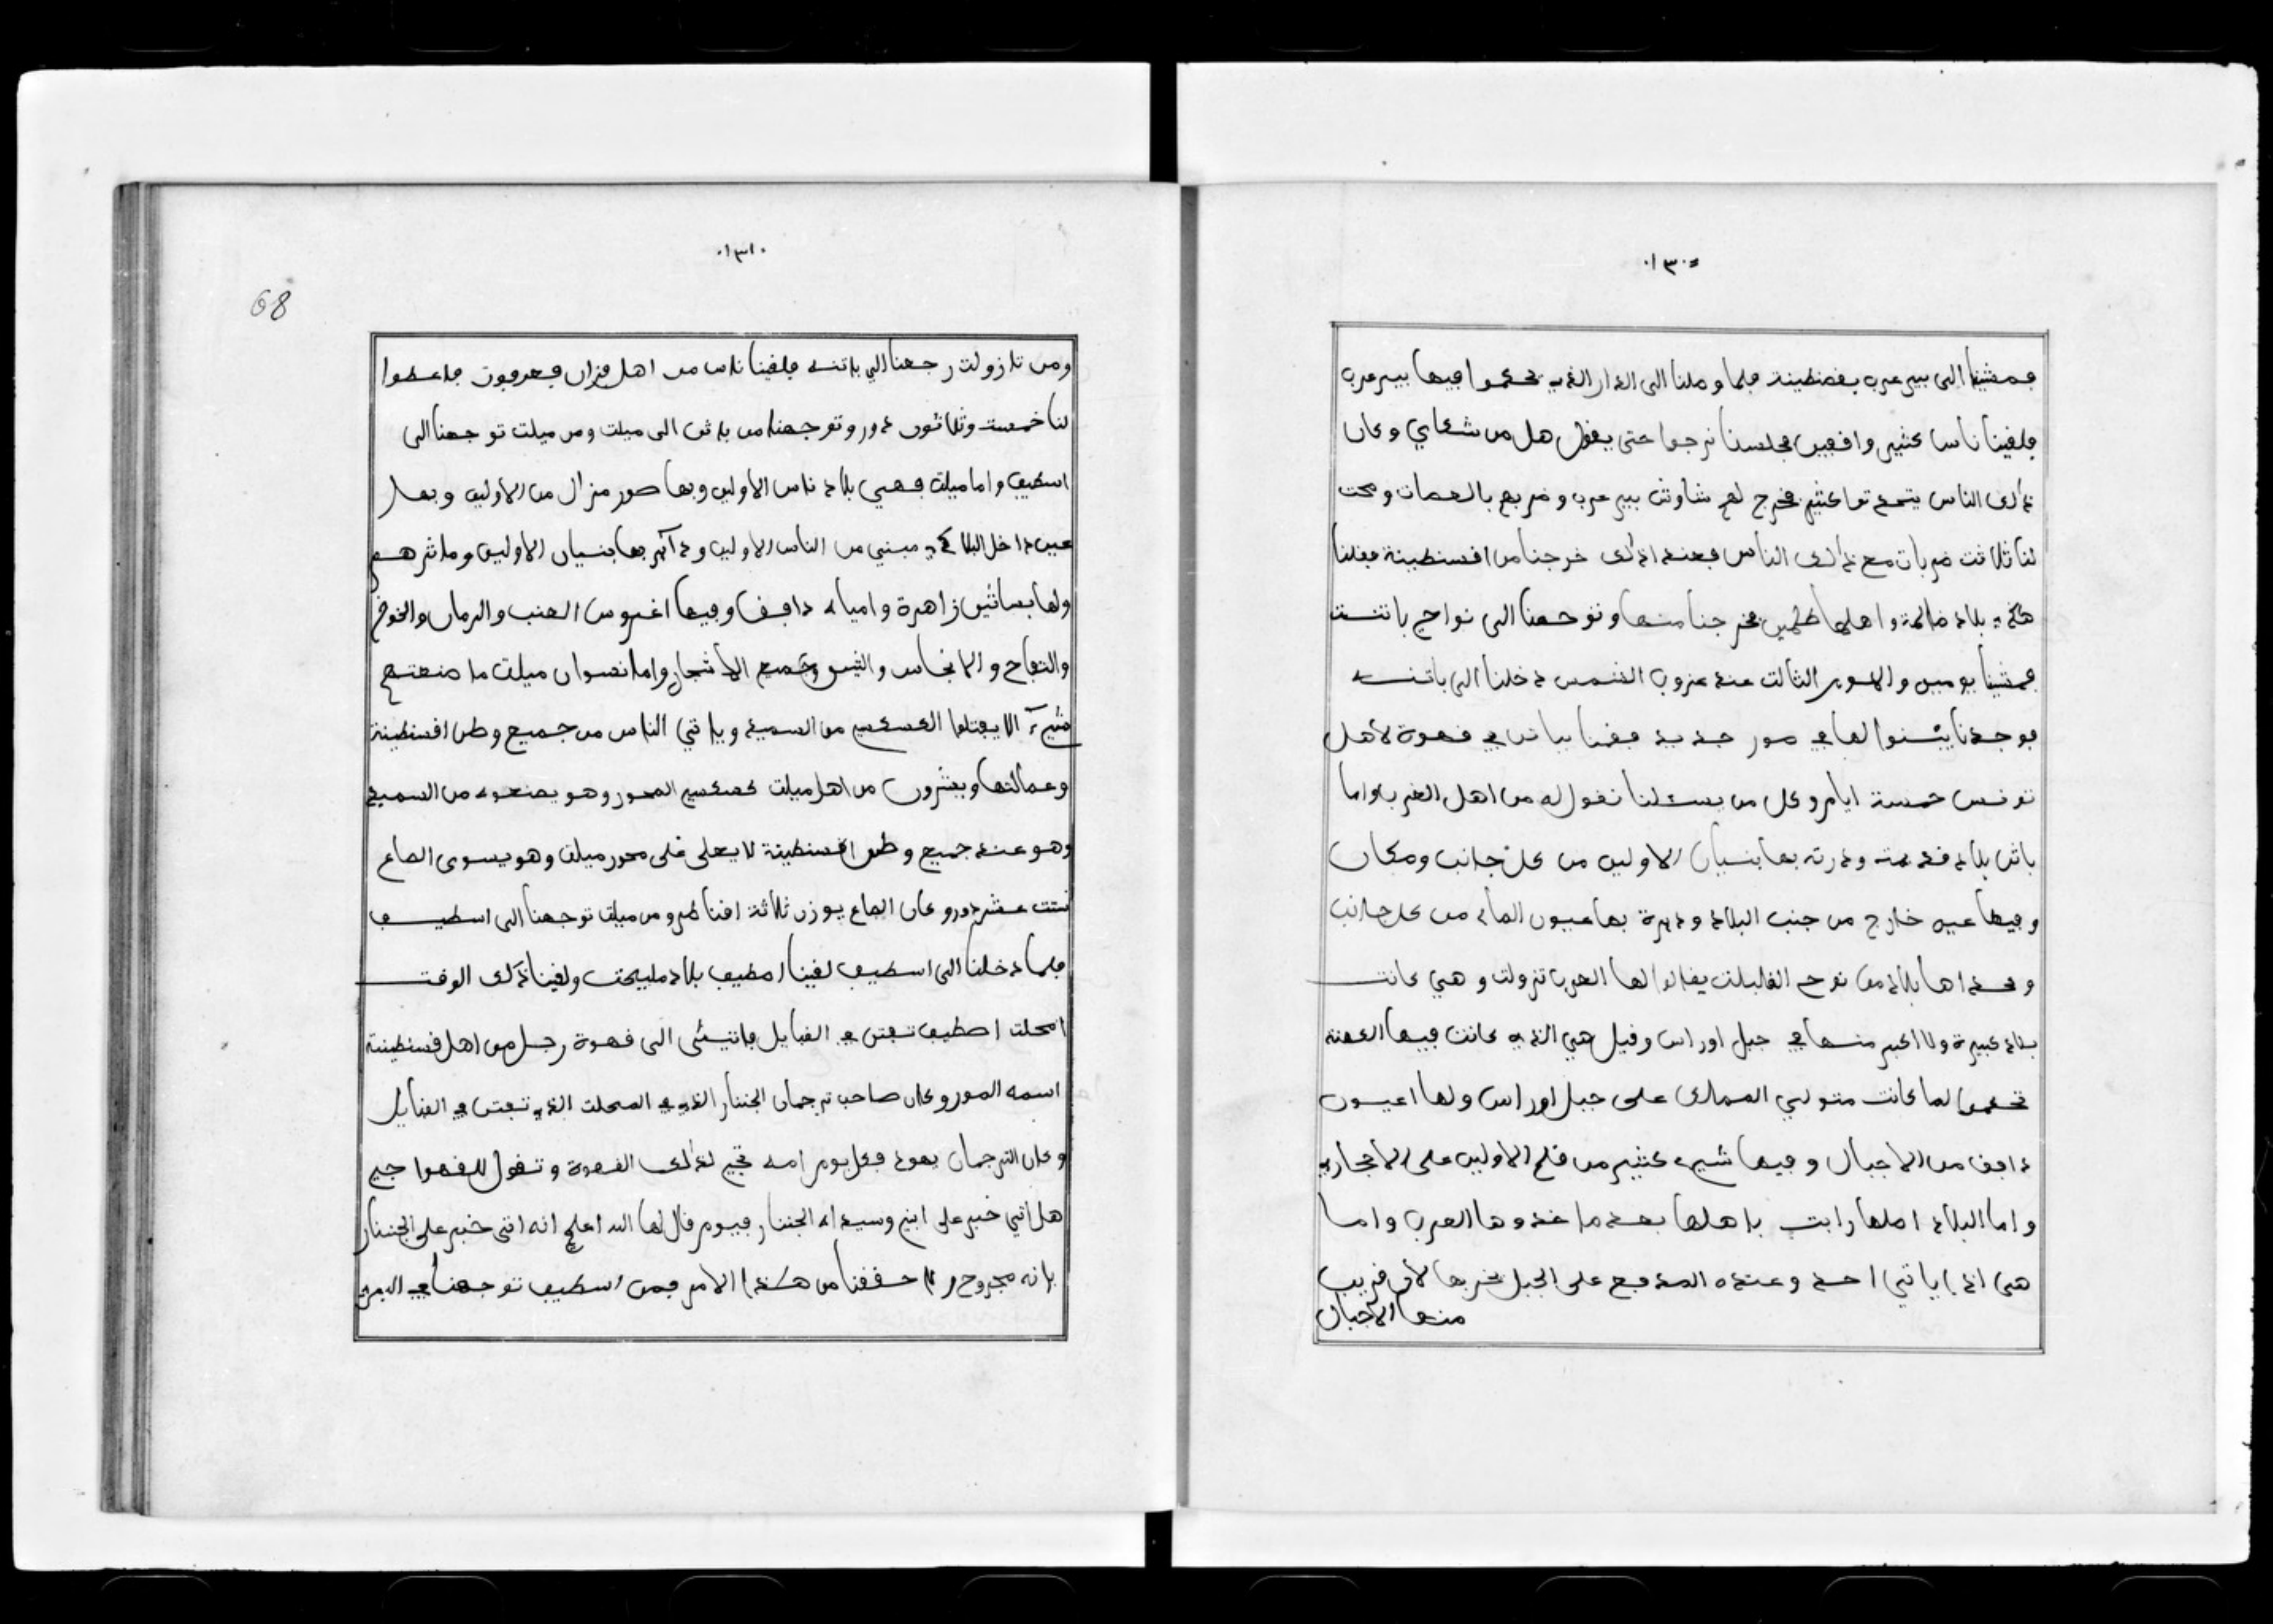 ١٣٠
فمشينا الى بير عرب بقصنطينة فلما وصلنا الى الدار الذي يحكموا فيها بير عرب
فلقينا ناس كثير واقفين فجلسنا نرجوا حتى يقول هل من شكاي وكان
ذلك الناس يتحدثوا كثير فخرج لهم شاوش بير عرب وضربهم بالعصات وصحت
لنا ثلاثت ضربات مع ذلك الناس فعند اذلك خرجنا من اقسنطينة فقلنا
هذه بلاد ظالمة واهلها ظلمين فخرجنا منها وتوجهنا الى نواحي باتنت
فمشينا يومين واليوم الثالت عند غروب الشمس دخلنا الى باتنه
فوجدنا يبنوا لها في صور جديد فقمنا بباتن في قهوة لاهل
تونس خمسة ايام وكل من يسئلنا نقول له من اهل الغرب واما
باتن بلاد قديمة ودرته بها بنيان الاولين من كل جانب ومكان
وفيها عين خارج من جنب البلاد ودايرة بها عيون الماء من كل جانب
وحداها بلاد من نوح القابلت يقالوا لها العرب تزولت وهي كانت
بلاد كبيرة ولا اكبر منها في جبل اوراس وقيل هي الذي كانت فيها الكهنة
تحكموا لما كانت متولي الممالك على جبل اوراس ولها اعيون
دافق من الاجبال وفيها شيء كثير من قلم الاولين على الاحجار
واما البلاد املها رابت باهلها بعد ما خذوها العرب واما
هي اذا ياتي احد وعنده المدفع على الجبل يخربها لان قريب
منها الاجبال
١٣١
68
ومن تازولت رجعنا الى باتنه فلقينا ناس من اهل فزان فعرفون فاعطوا
لنا خمست وثلاثون دورو توجهنا من باتن الى ميلت ومن ميلت توجهنا الى
اسطيف واما ميلت فهي بلاد ناس الاولين وبها صور منزال من الاولين وبها
عين داخل البلاد مبني من الناس الاولين ودآئر بها بنيان الاولين وماثرهم
ولها بساتين زاهرة وامياه دافق وفيها اغروس العنب والرمان والخوخ
والتفاح والانجاس والتين وجميع الاشجار واما نسوان ميلت ما صنعتهم
شيء الا يفتلوا الكسكس من السميد وياتي الناس من جميع وطن اقسنطينة
وعمالتها ويشرون من اهل ميلت كسكس المحور وهو يصنعوه من السميد
وهو عند جميع وطن اقسنطينة لا يعلى على محور ميلت وهو يسوى الصاع
ستت عشر دورو كان الصاع يوزن ثلاثة اقناطر ومن ميلت توجهنا الى اسطيف
فلما دخلنا الى اسطيف لقينا اصطيف بلاد مليحت ولقينا ذلك الوقت
امحلت اصطيف تفتن في القبايل فاتيت الى قهوة رجل من اهل قسنطينة
اسمه المورو كان صاحب ترجمان الجننار الذي في المحلت الذي تفتن في القبايل
وكان الترجمان يهود فكل يوم امه تجي لذلك القهوة وتقول للقهواجي
هل اتي خبر على ابني وسيده الجننار فيوم قال لها الله اعلم انه اتى خبر على الجننار
بانه مجروح و حققنا من هاذا الامر فمن اسطيف توجهنا في